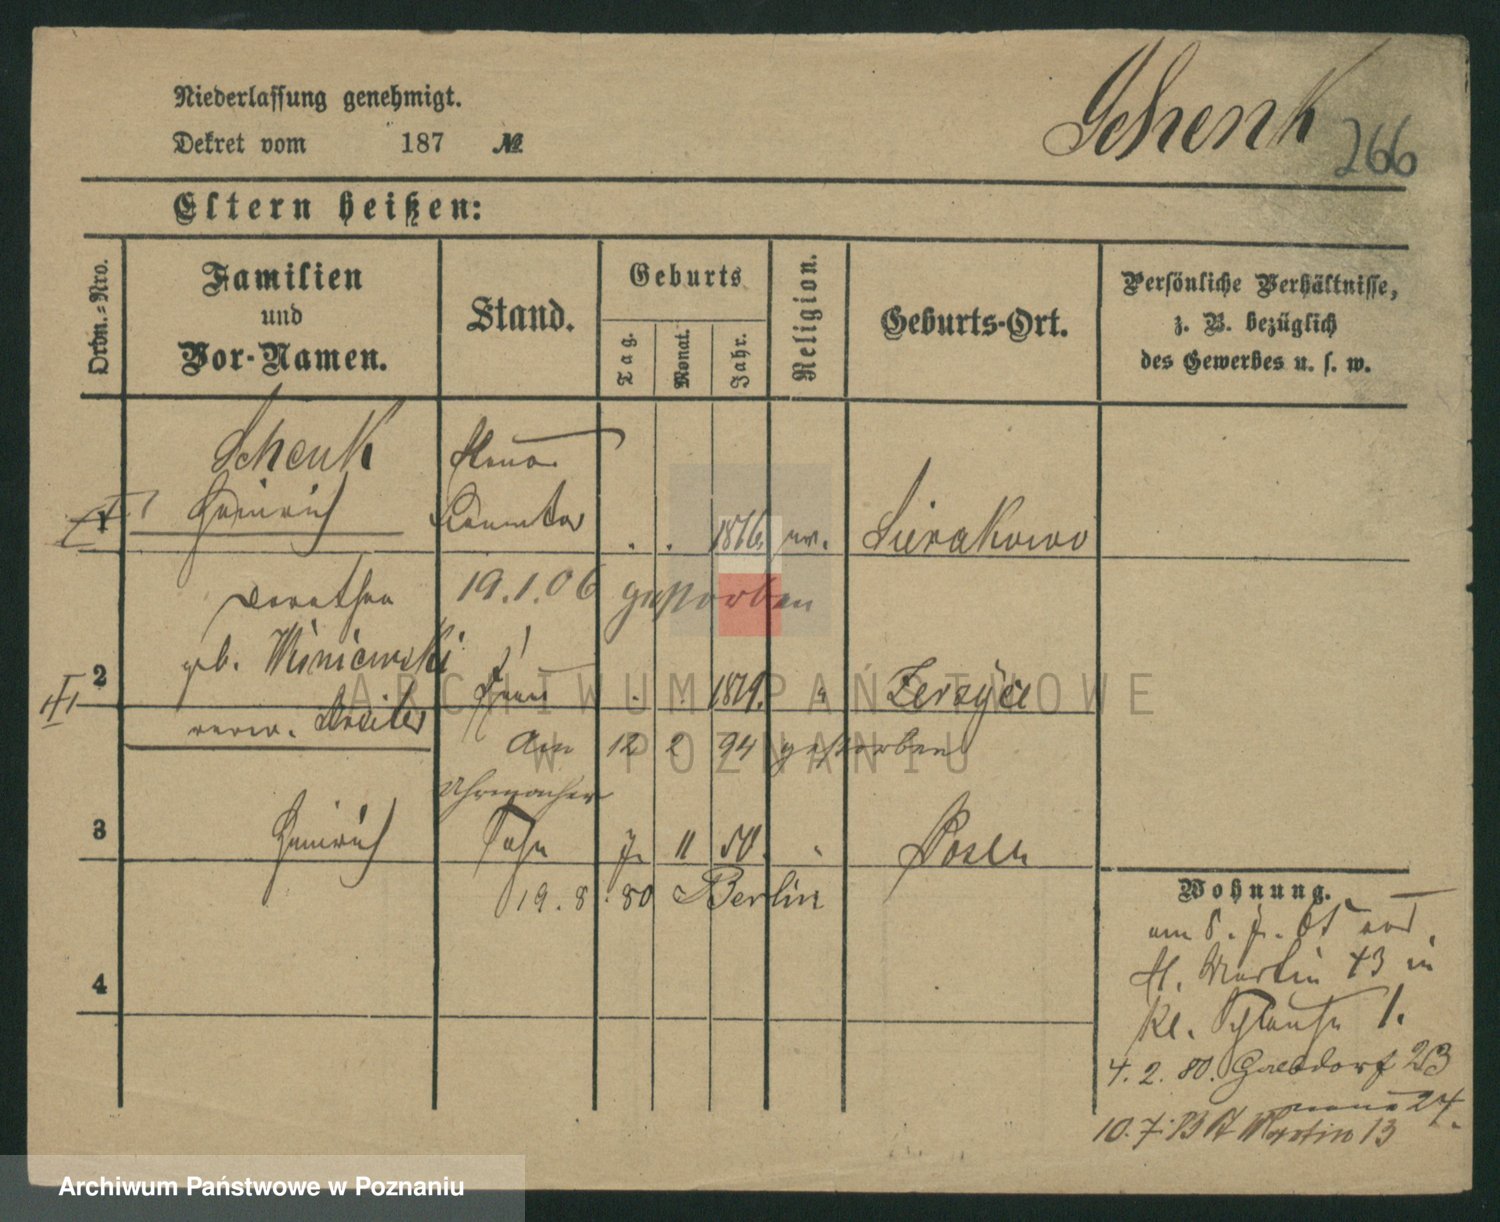 Niederlassung genehmigt.
Dekret vom 187 №
Schenk 266
Eltern heißen:
Ordn.-Nro.
Familien
und
Vor-Namen.
Stand.
Geburts
Tag.
Monat.
Jahr.
Religion.
Geburts-Ort.
Persönliche Verhältnisse,
z. B. bezüglich
des Gewerbes u. s. w.
Schenk
1 Heinrich . . Sierakowo
Dorothea 19.1.06 gestorben
geb. Wisniewski
2 Frau . . 1819. " Jerzyce
verw.
am 12 2 94 gestorben
Uhrmacher
3 Heinrich Sohn 7. 11 50. " Posen
19. 8. 80 Berlin
4
Wohnung.
am 8. 7. von
St. Martin 73 in
Kl. 1.
4. 2. 80. 23
24.
10. 7. St Martin 13
ARCHIWUM PAŃSTWOWE
W POZNANIU
Archiwum Państwowe w Poznaniu